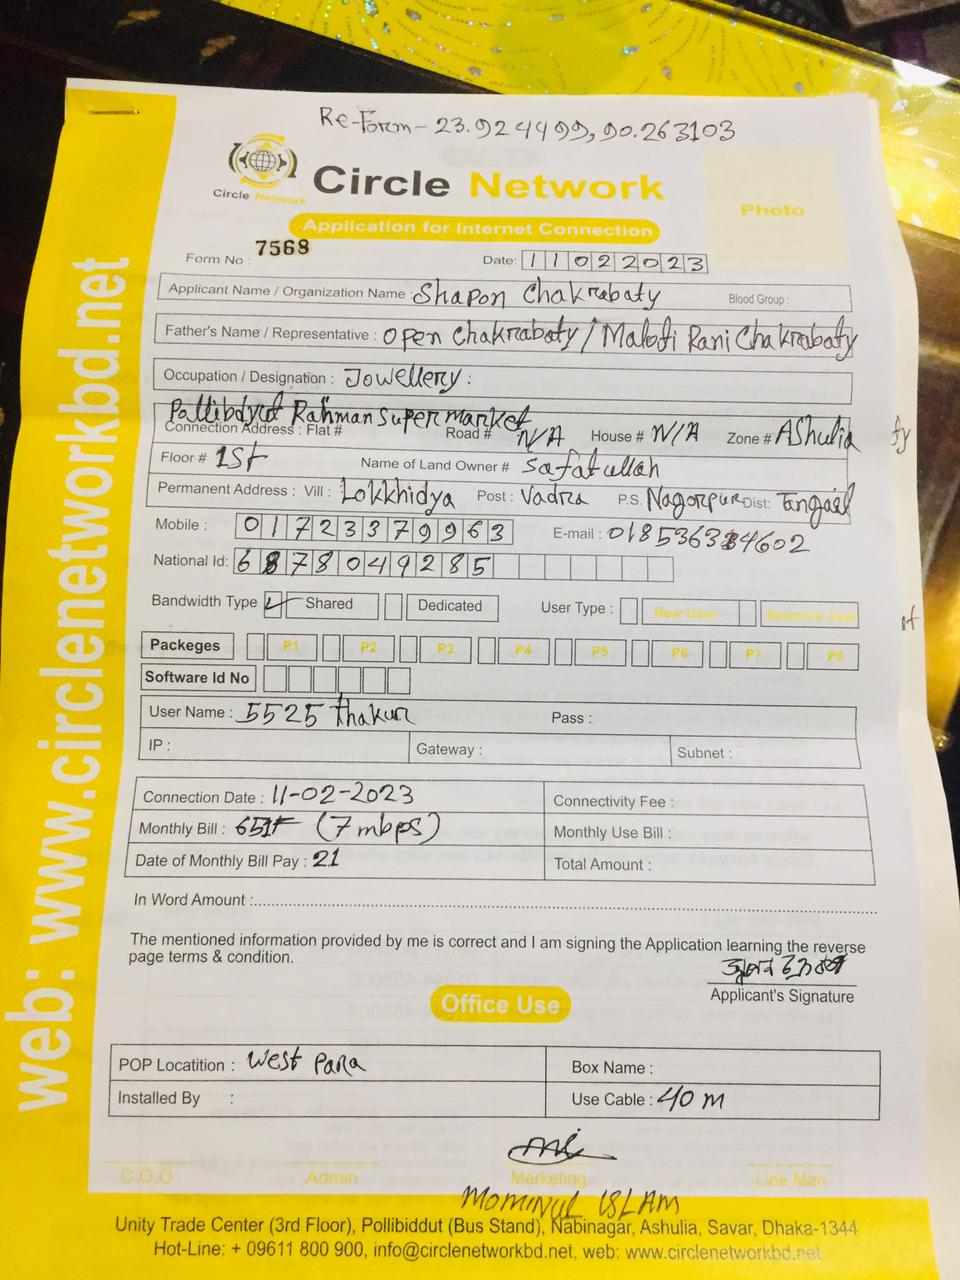 Re-Form - 23.924499, 90.263103
Circle Network
Circle Network
Photo
Application for Internet Connection
Form No : 7568
Date: 11022023
Applicant Name / Organization Name : Shapon Chakrabaty Blood Group :
Father's Name / Representative : Open Chakrabaty / Maloti Rani Chakrabaty
Occupation / Designation : Jowellery :
Pallibdyut Rahman super market
Connection Address : Flat # Road # N/A House # N/A Zone # AShulia
Floor # 1St Name of Land Owner # Safatullah
Permanent Address : Vill : Lokkhidya Post : Vadra P.S. Nagorpur Dist: Tangail
Mobile : 01723379963 E-mail :
National Id: 6878049285
Bandwidth Type Shared Dedicated User Type : New User Reactive User
Packeges P1 P2 P3 P4 P5 P6 P7 P8
Software Id No
User Name : 5525 thakur Pass :
IP : Gateway : Subnet :
Connection Date : 11-02-2023 Connectivity Fee :
Monthly Bill : (7 mbps) Monthly Use Bill :
Date of Monthly Bill Pay : 21 Total Amount :
In Word Amount :
The mentioned information provided by me is correct and I am signing the Application learning the reverse
page terms & condition.
Applicant's Signature
Office Use
POP Locatition : West Para Box Name :
Installed By : Use Cable : 40 m
C.O.O Admin Marketing Line Man
Mominul ISLAM
Unity Trade Center (3rd Floor), Pollibiddut (Bus Stand), Nabinagar, Ashulia, Savar, Dhaka-1344
Hot-Line: + 09611 800 900, info@circlenetworkbd.net, web: www.circlenetworkbd.net
web: www.circlenetworkbd.net